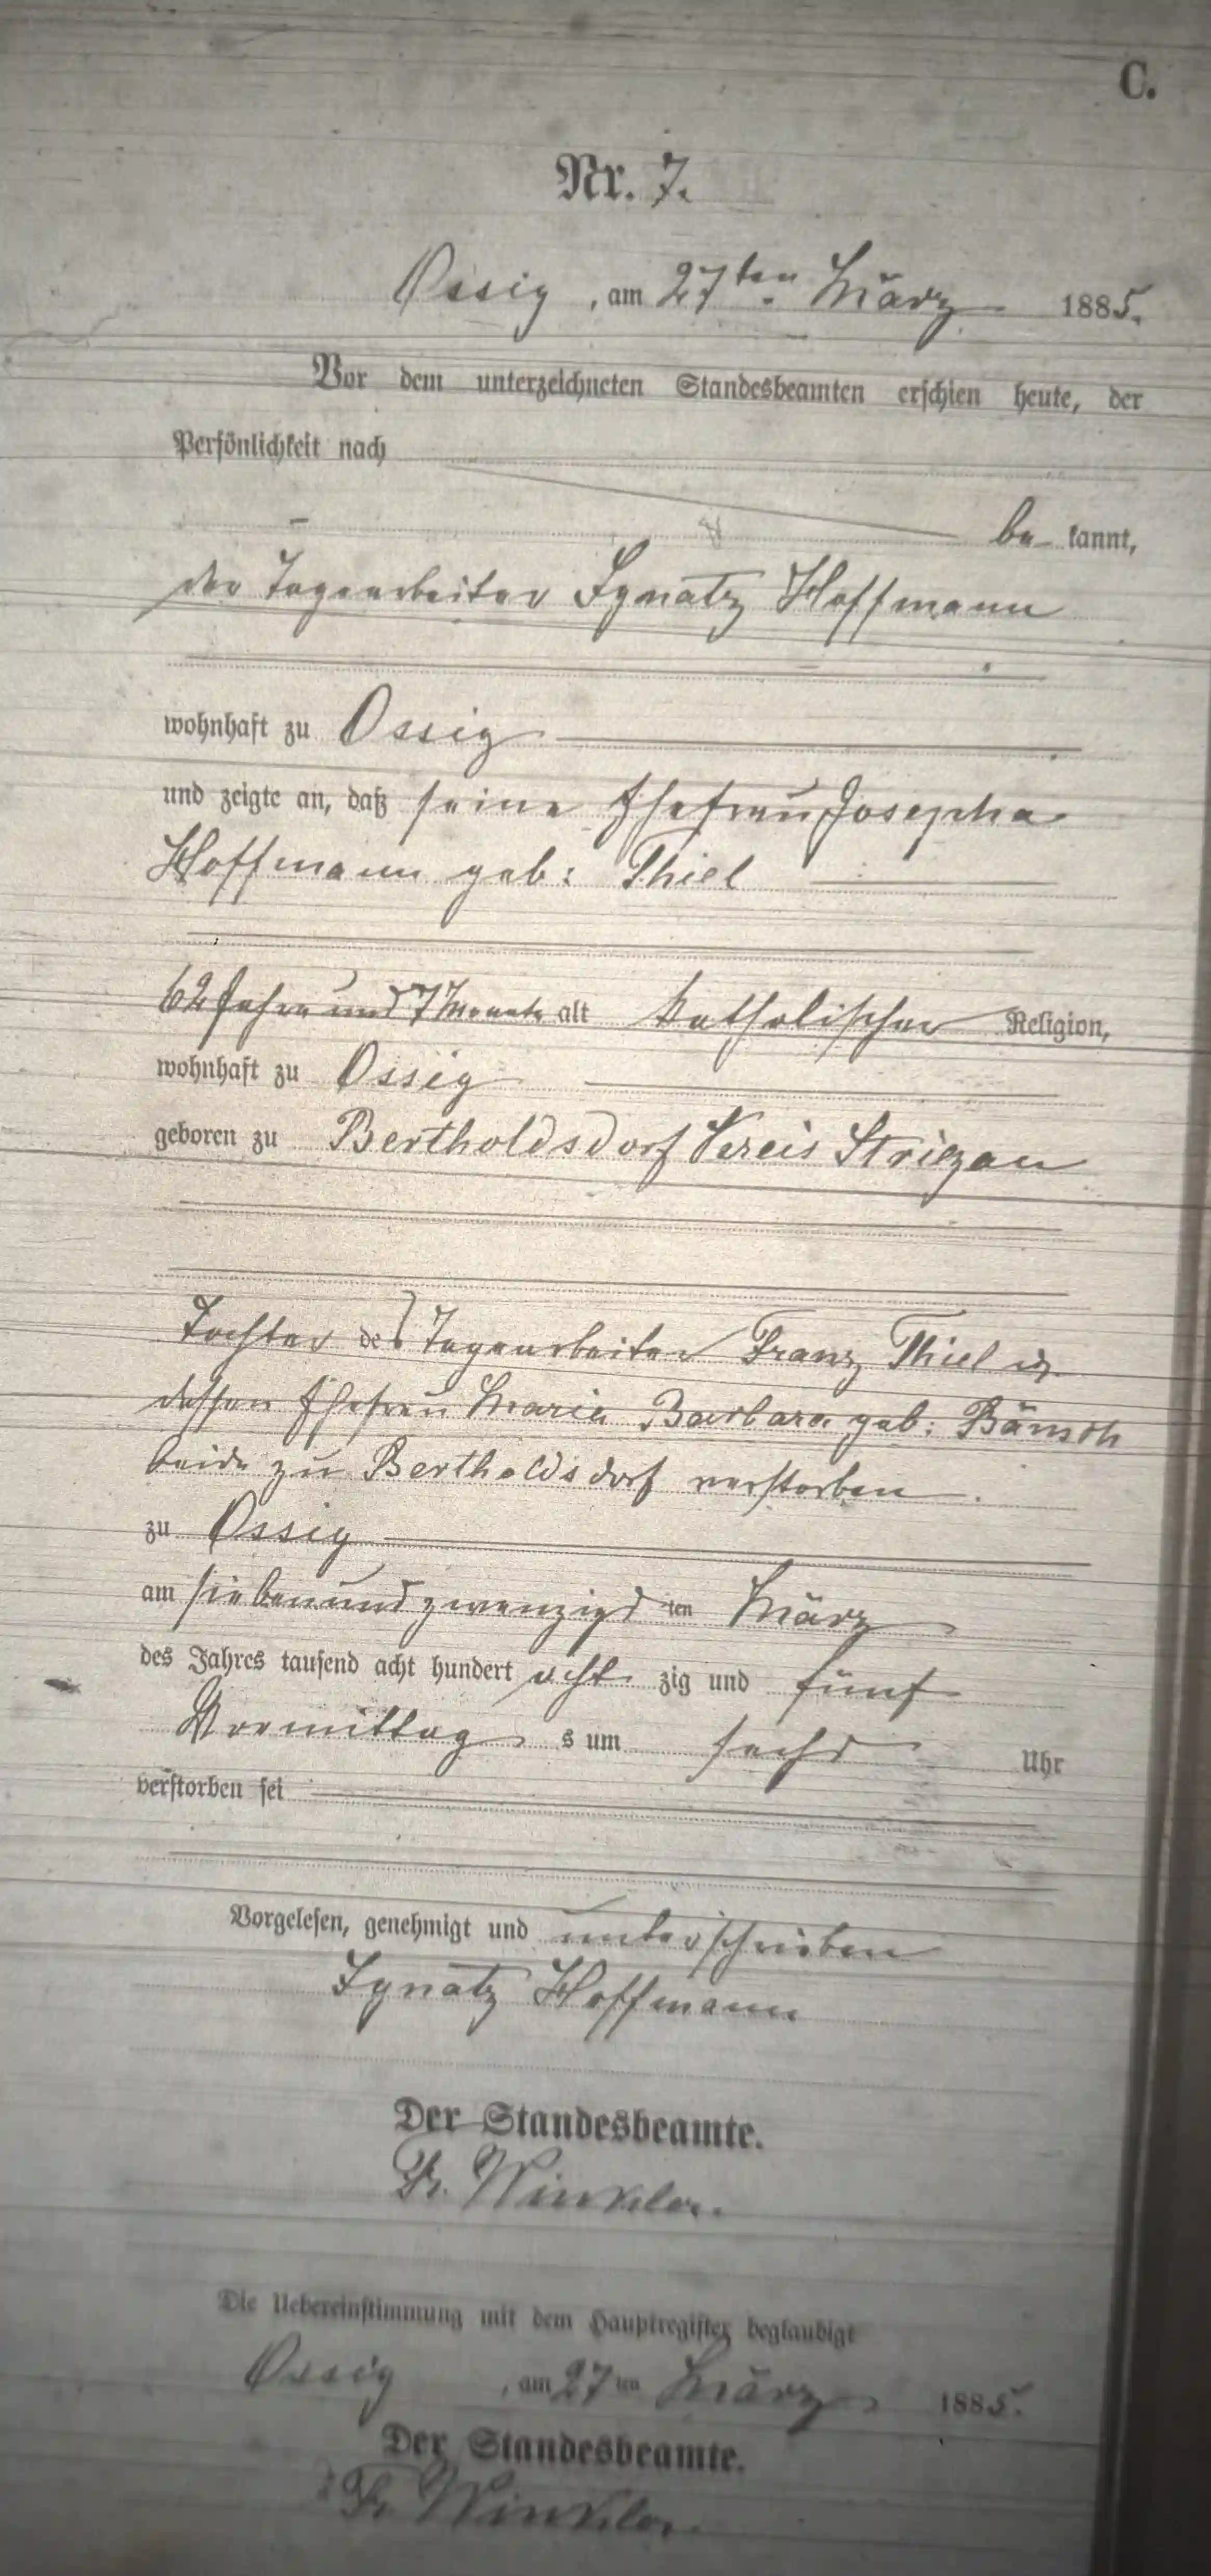 C.
Nr. 7.
Ossig, am 27ten März 1885.
Vor dem unterzeichneten Standesbeamten erschien heute, der
Persönlichkeit nach
be kannt,
der Tagearbeiter Ignatz Hoffmann
wohnhaft zu Ossig
und zeigte an, daß seine Ehefrau Josepha
Hoffmann geb: Thiel
62 Jahre und 7 Monate alt katholischer Religion,
wohnhaft zu Ossig
geboren zu Bertholdsdorf Kreis Striegau
Tochter des Tagearbeiter Franz Thiel u.
dessen Ehefrau Maria Barbara geb: Bänsch
beide zu Bertholdsdorf verstorben
zu Ossig
am siebenundzwanzigsten März
des Jahres tausend acht hundert acht zig und fünf
Vormittag s um sechs Uhr
verstorben sei
Vorgelesen, genehmigt und unterschrieben
Ignatz Hoffmann
Der Standesbeamte.
Fr. Winkler.
Die Uebereinstimmung mit dem Hauptregister beglaubigt
Ossig, am 27ten März 1885.
Der Standesbeamte.
Fr. Winkler.